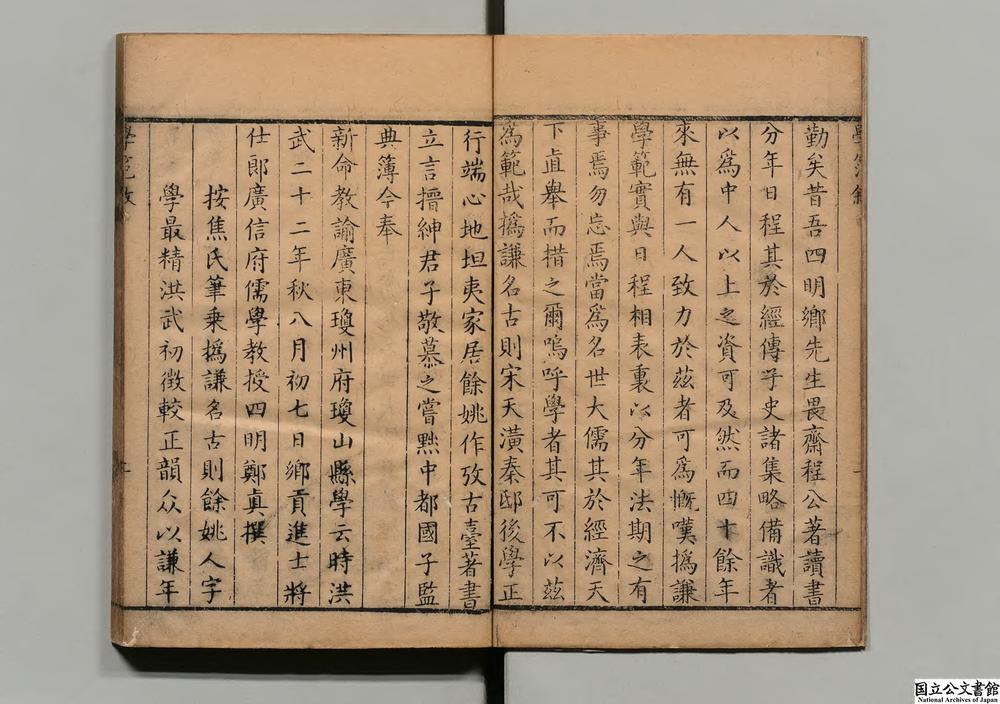 勤矣昔吾四明鄉先生畏齋程公著讀書
分年日程其於經傳子史諸集略備識者
以為中人以上之資可及然而四十餘年
來無有一人致力於茲者可為慨嘆撝謙
學範實與日程相表裏以分年法期之有
事焉勿忘焉當為名世大儒其於經濟天
下直舉而措之爾嗚呼學者其可不以茲
為範哉撝謙名古則宋天潢秦邸後學正
行端心地坦夷家居餘姚作攷古臺著書
立言搢紳君子敬慕之嘗㸃中都國子監
典簿今奉
新命教諭廣東瓊州府瓊山縣學云時洪
武二十二年秋八月初七日鄉貢進士將
仕郎廣信府儒學教授四明鄭真撰
按焦氏筆乘撝謙名古則餘姚人字
學最精洪武初徴較正韻众以謙年
国立公文書館
National Archives of Japan